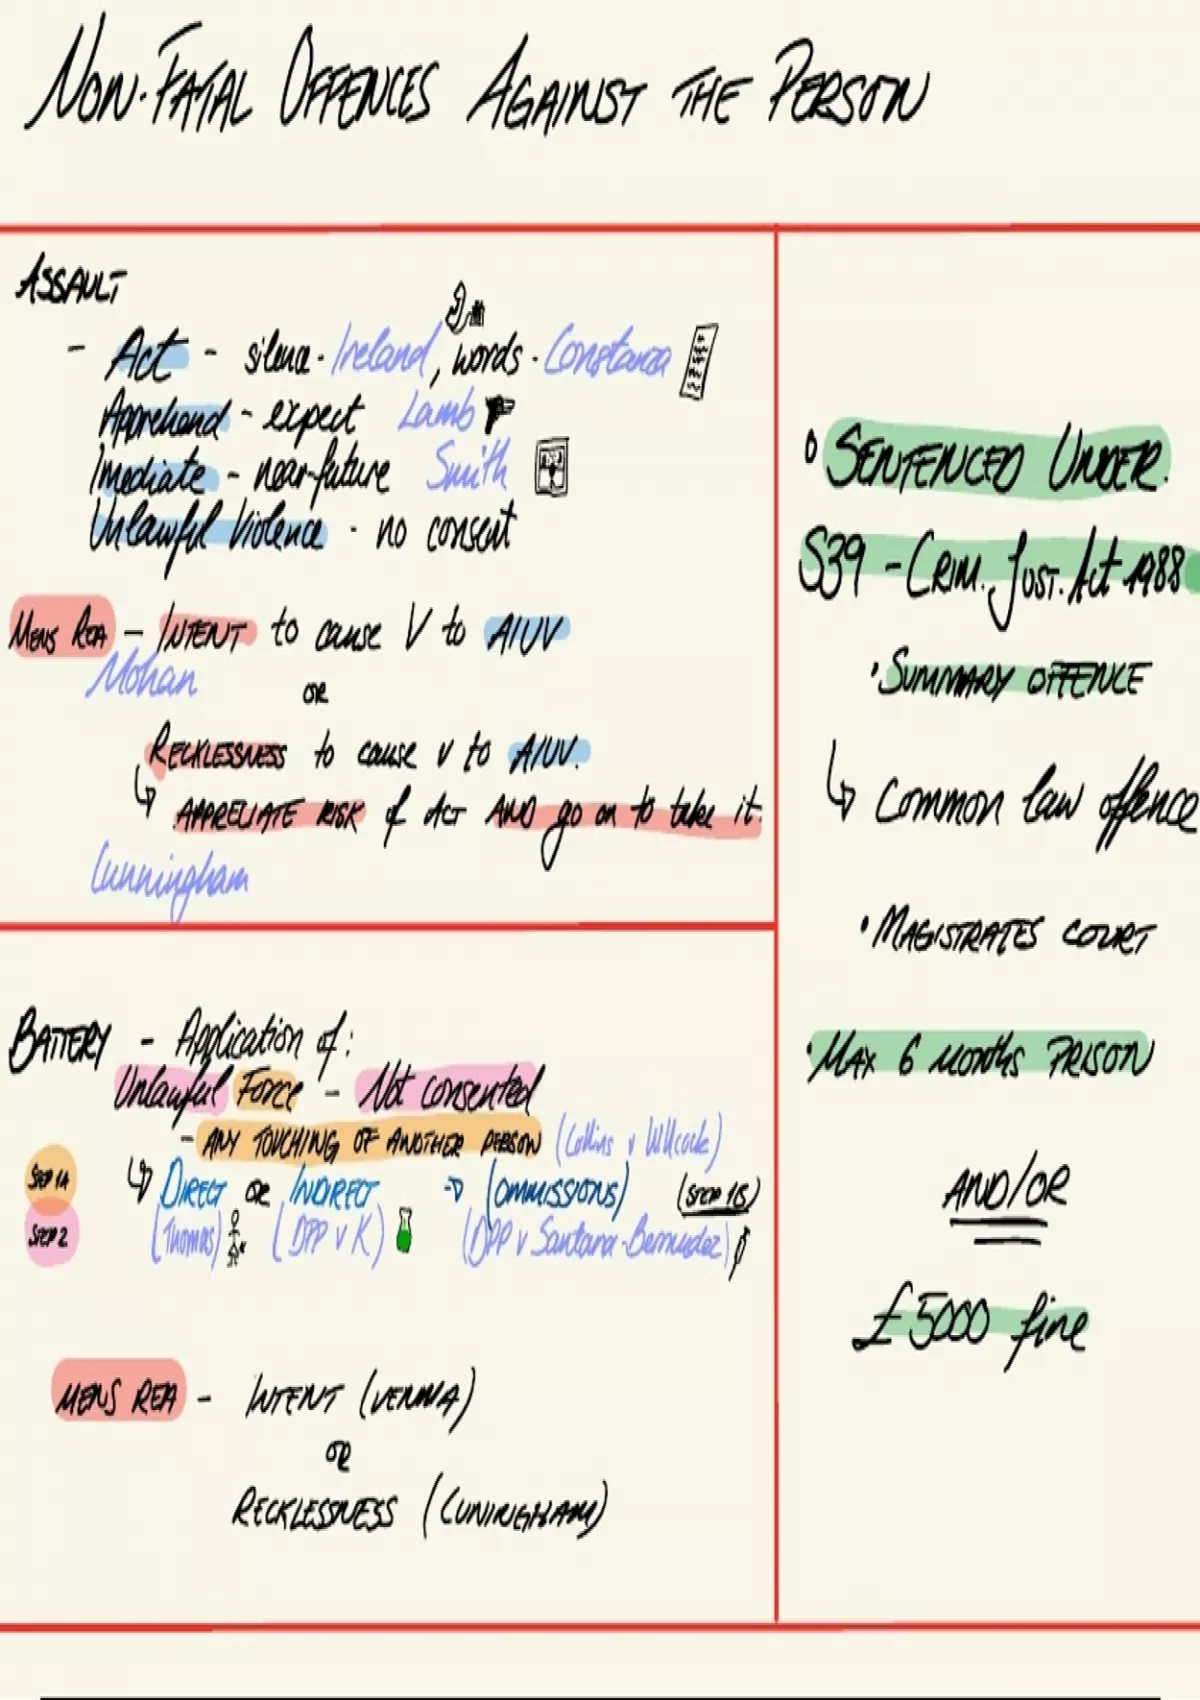 NON-FATAL OFFENCES AGAINST THE PERSON
ASSAULT
- Act - silence - Ireland, words - Constanza
Apprehend - expect Lamb
Imediate - near-future Smith
Unlawful Violence - no consent
MENS REA - INTENT to cause V to AIUV
Mohan
OR
RECKLESSNESS to cause v to AIUV.
↳ APPRECIATE RISK of ACT AND go on to take it.
Cunningham
BATTERY - Application of:
Unlawful Force - Not consented
- ANY TOUCHING OF ANOTHER PERSON (Collins v Willcock)
STEP 1A
↳ DIRECT OR INDIRECT → (OMMISSIONS) (STEP 1B)
STEP 2
(Thomas) (DPP v K) (DPP v Santana-Bermudez)
MENS REA - INTENT (VENNA)
OR
RECKLESSNESS (CUNINGHAM)
• SENTENCED UNDER.
S39 - CRIM. JUST. Act 1988
• SUMMARY OFFENCE
↳ Common law offence
• MAGISTRATES COURT
• MAX 6 MONTHS PRISON
AND/OR
£5000 fine